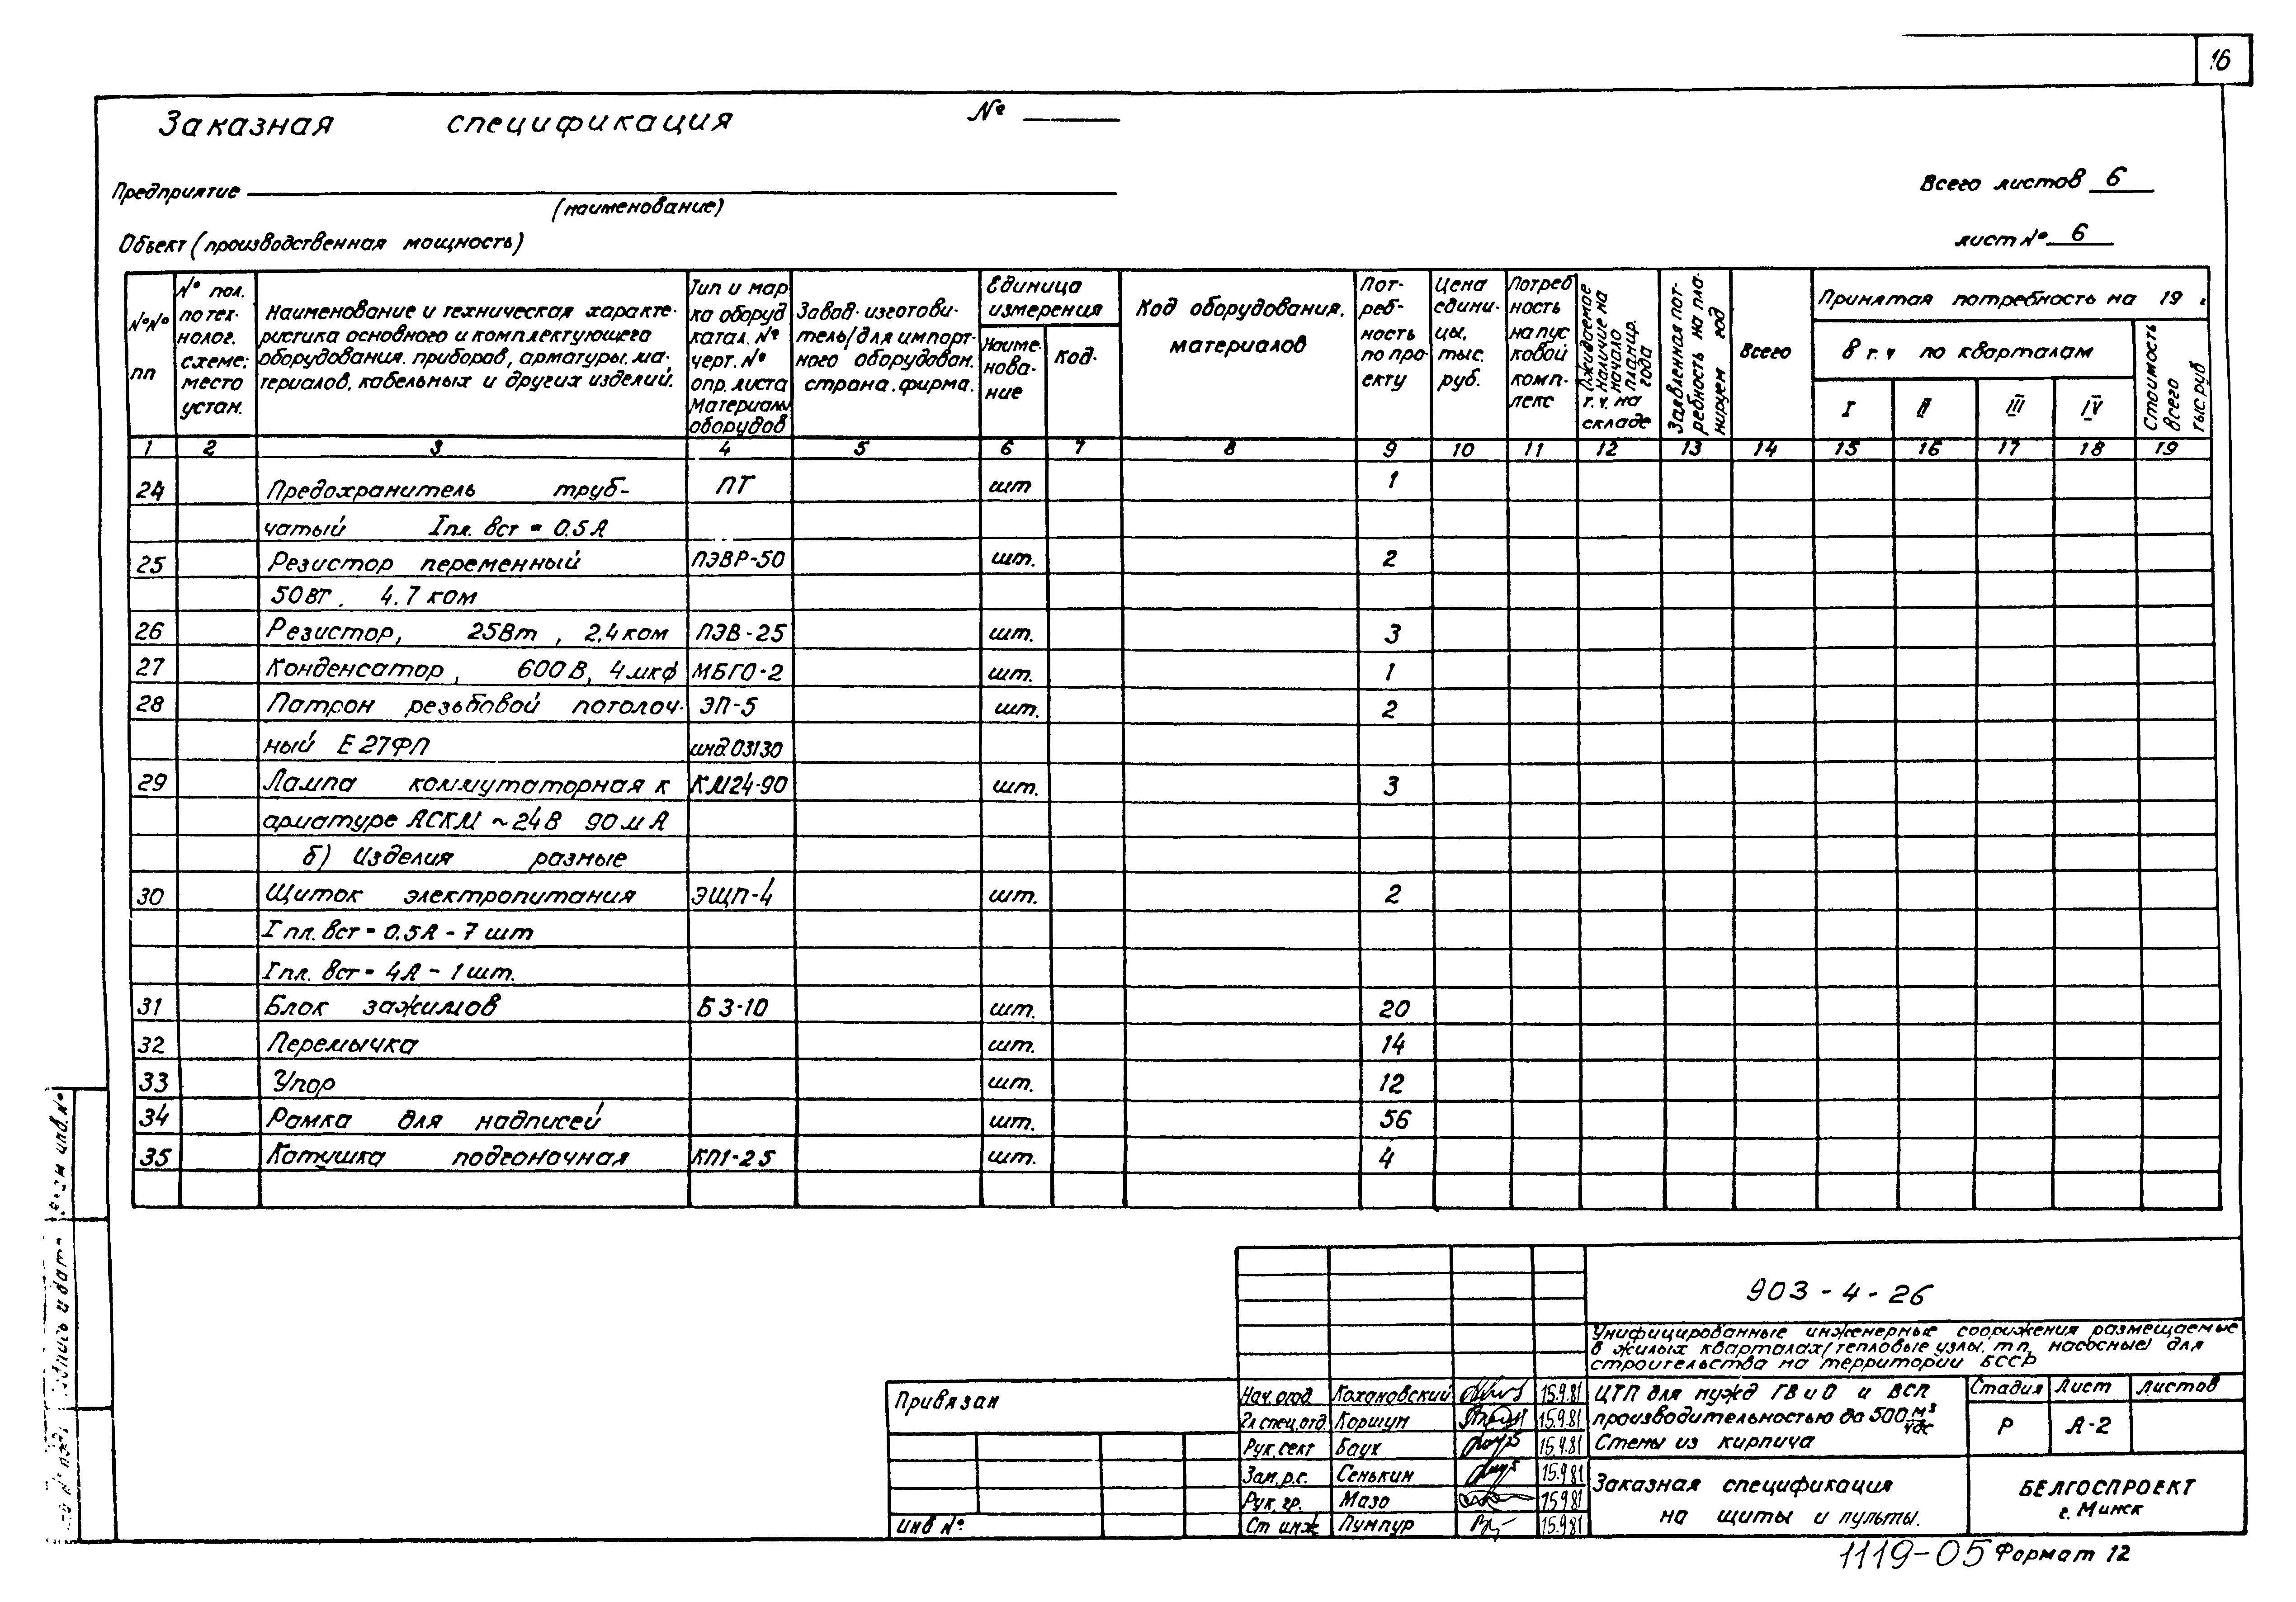 16
Заказная спецификация №
Предприятие
(наименование)
Всего листов 6
Объект (производственная мощность)
лист № 6
№№ пп
№ поз. по технолог. схеме; место устан.
Наименование и техническая характе-
ристика основного и комплектующего
оборудования. приборов, арматуры, ма-
териалов, кабельных и других изделий.
Тип и мар
ка оборуд
катал. №
черт. №
опр. листа
Материалы
оборудов
Завод-изготови-
тель/для импорт-
ного оборудован.
страна, фирма.
Единица
измерения
Наиме-
нова-
ние
Код.
Код оборудования,
материалов
Пот-
реб-
ность
по про
екту
Цена
едини-
цы,
тыс.
руб.
Потреб
ность
на пус
ковой
комп-
лекс
Ожидаемое
наличие на
начало
планир.
года
т.ч. на
складе
Заявленная пот-
ребность на пла-
нируем год
Всего
Принятая потребность на 19 г
в т. ч по кварталам
I II III IV
Стоимость
всего
тыс. руб
1 2 3 4 5 6 7 8 9 10 11 12 13 14 15 16 17 18 19
24 Предохранитель труб- ПТ шт 1
чатый Iпл. вст = 0.5А
25 Резистор переменный ПЭВР-50 шт. 2
50вт, 4.7 ком
26 Резистор, 25Вт, 2,4 ком ПЭВ-25 шт. 3
27 Конденсатор, 600В, 4мкф МБГО-2 шт. 1
28 Патрон резьбовой потолоч- ЭП-5 шт. 2
ный Е27ФП инд.03130
29 Лампа коммутаторная к КМ24-90 шт. 3
арматуре АСКМ ~24В 90мА
б) Изделия разные
30 Щиток электропитания ЭЩП-4 шт. 2
Iпл. вст = 0.5А - 7 шт
Iпл. вст = 4А - 1 шт.
31 Блок зажимов БЗ-10 шт. 20
32 Перемычка шт. 14
33 Упор шт. 12
34 Рамка для надписей шт. 56
35 Катушка подгоночная КП1-25 шт. 4
903-4-26
Унифицированные инженерные сооружения размещаемые
в жилых кварталах/тепловые узлы, тп, насосные/ для
строительства на территории БССР
Привязан
Инв №
Нач. отд. Кохановский 15.9.81
Гл спец.отд. Коршун 15.9.81
Рук. сект Баух 15.9.81
Зам. р.с. Сенькин 15.9.81
Рук. гр. Мазо 15.9.81
Ст инж Пумпур 15.9.81
ЦТП для нужд ГВ и О и ВСП
производительностью до 500 м³/час
Стены из кирпича
Стадия Лист Листов
Р А-2
Заказная спецификация
на щиты и пульты.
БЕЛГОСПРОЕКТ
г. Минск
1119-05 Формат 12